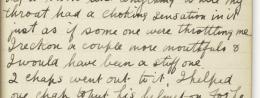 throat had a choking sensation in it
just as if some one were throttling me
I reckon a couple more mouthfuls &
I would have been a stiff one
2 chaps went out to it. I helped
one chap to put his helmet on